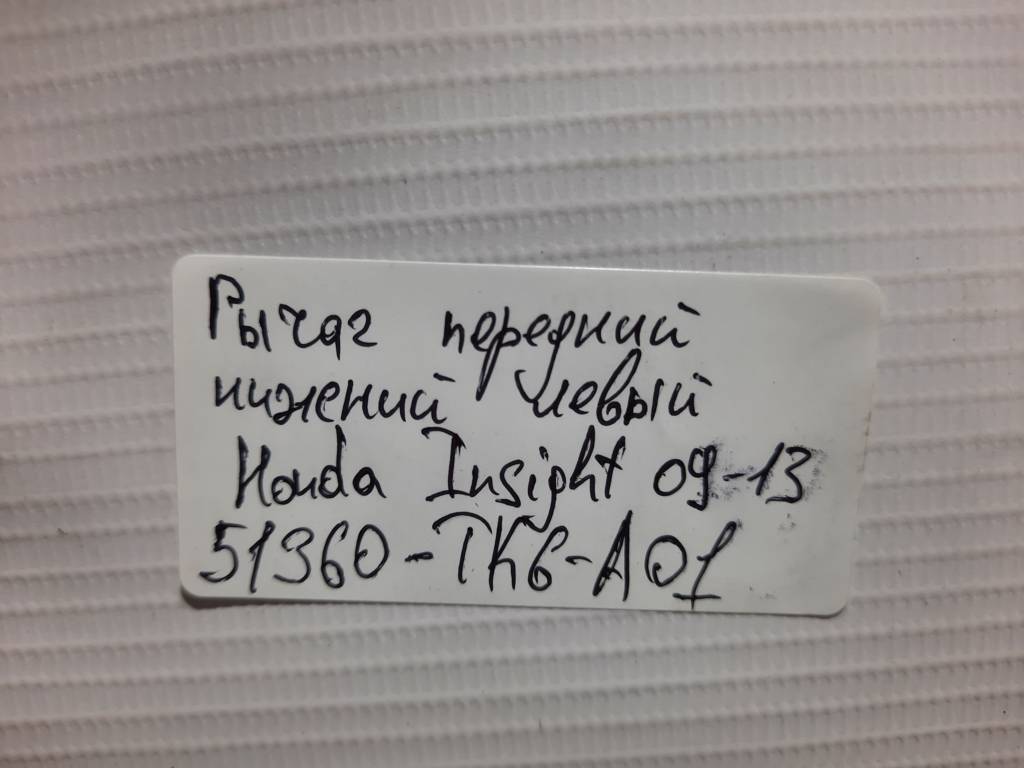 Рычаг передний
нижений левый
Honda Insight 09-13
51360-TK6-A01